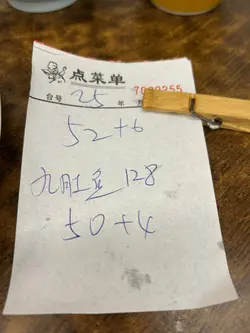 点菜单
7099255
台号 25 年
52+6
九肚鱼 128
50+4